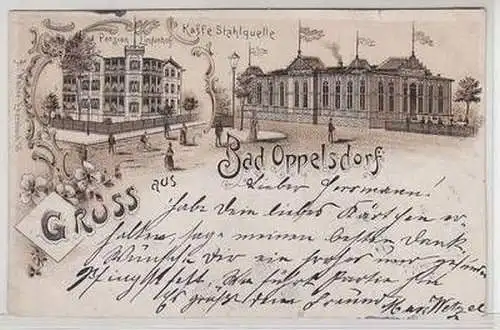 Pension Lindenhof
Kaffe Stahlquelle
Bad Oppelsdorf
Gruss aus
Lieber Herrmann!
habe Dein liebes Kärtchen er
halten, sage meinen besten Dank
Wünsche Dir ein frohes und gesundes
Pfingstfest.
Es grüßt Dein Freund
Max Wetzel